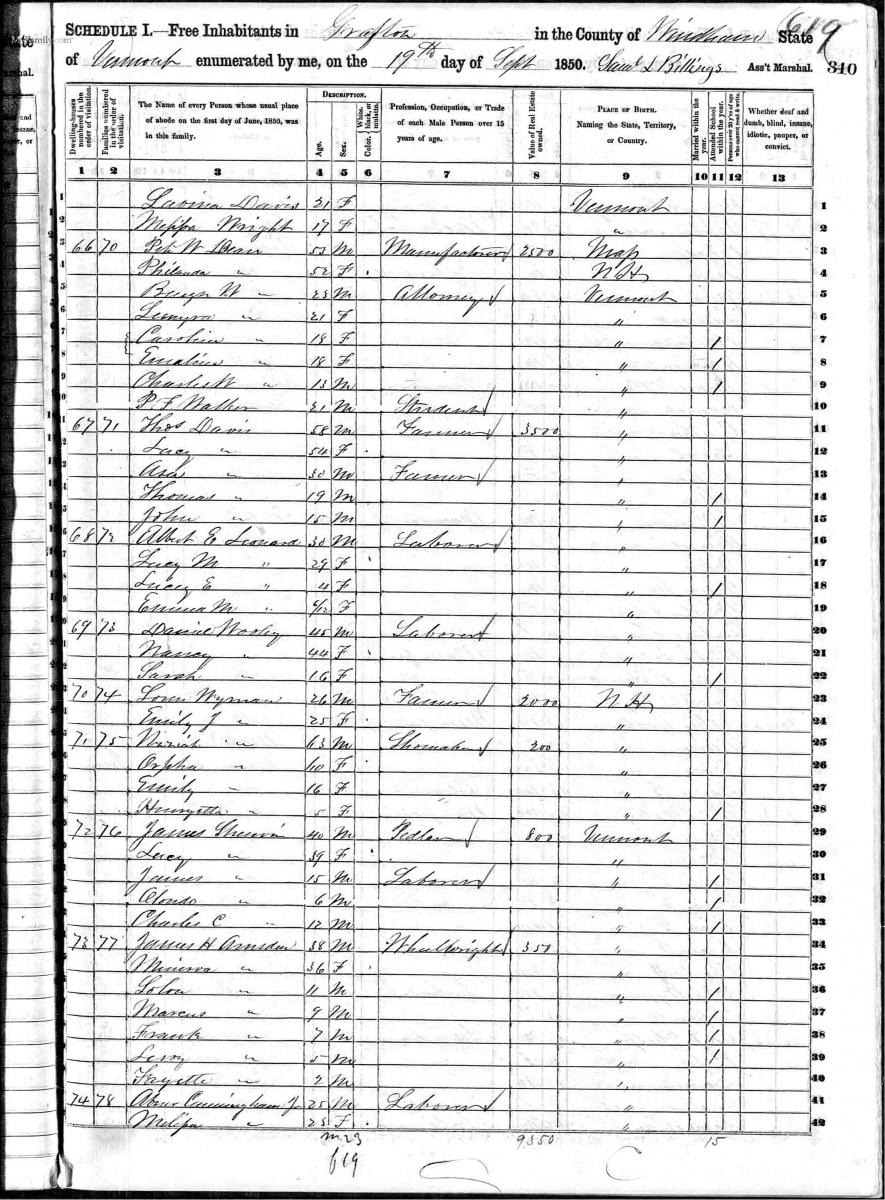 619
SCHEDULE I.—Free Inhabitants in Grafton in the County of Windham State
of Vermont enumerated by me, on the 19th day of Sept 1850. Saml L Billings Ass't Marshal. 310
Dwelling-houses numbered in the order of visitation.
Families numbered in the order of visitation.
The Name of every Person whose usual place of abode on the first day of June, 1850, was in this family.
DESCRIPTION.
Age.
Sex.
Color. White, black, or mulatto.
Profession, Occupation, or Trade of each Male Person over 15 years of age.
Value of Real Estate owned.
PLACE OF BIRTH. Naming the State, Territory, or Country.
Married within the year.
Attended School within the year.
Persons over 20 y'rs of age who cannot read & write.
Whether deaf and dumb, blind, insane, idiotic, pauper, or convict.
1 2 3 4 5 6 7 8 9 10 11 12 13
1 Lavina Davis 21 F Vermont 1
2 Melissa Wright 17 F " 2
3 66 70 W Dean 53 M Manufacturer 2500 Mass 3
4 Philanda " 52 F N H 4
5 W " 23 M Attorney Vermont 5
6 " 21 F " 6
7 Caroline " 18 F " / 7
8 Emaline " 18 F " / 8
9 Charles W " 13 M " / 9
10 P. F Walker 21 M Student " 10
11 67 71 Thos Davis 58 M Farmer 3500 " 11
12 Lucy " 54 F " 12
13 Asa " 30 M Farmer " 13
14 Thomas " 19 M " / 14
15 John " 15 M " / 15
16 68 72 Albert E Leonard 30 M Laborer " 16
17 Lucy M " 29 F " 17
18 Lucy E " 4 F " / 18
19 Emma M " /12 F " 19
20 69 73 Daniel Wooley 45 M Laborer " 20
21 Nancy " 44 F " 21
22 Sarah " 16 F " / 22
23 70 74 Loren Wyman 26 M Farmer 2000 N H 23
24 Emily J " 25 F " 24
25 71 75 " 63 M Shomaker 200 " 25
26 Orpha " 60 F " 26
27 Emily " 16 F " 27
28 Henryetta " 5 F " / 28
29 72 76 James Sherwin 40 M Pedlar 800 Vermont 29
30 Lucy " 39 F " 30
31 James " 15 M Laborer " / 31
32 Alondo " 6 M " / 32
33 Charles C " 12 M " / 33
34 73 77 James H Amsden 38 M Wheelwright 350 " 34
35 Minerva " 36 F " 35
36 Solon " 11 M " / 36
37 Marcus " 9 M " / 37
38 Frank " 7 M " / 38
39 Leroy " 5 M " / 39
40 Fayette " 2 M " 40
41 74 78 Abner Cunningham Jr 25 M Laborer " 41
42 Melissa " 25 F " 42
m 23 9350 15
f 19